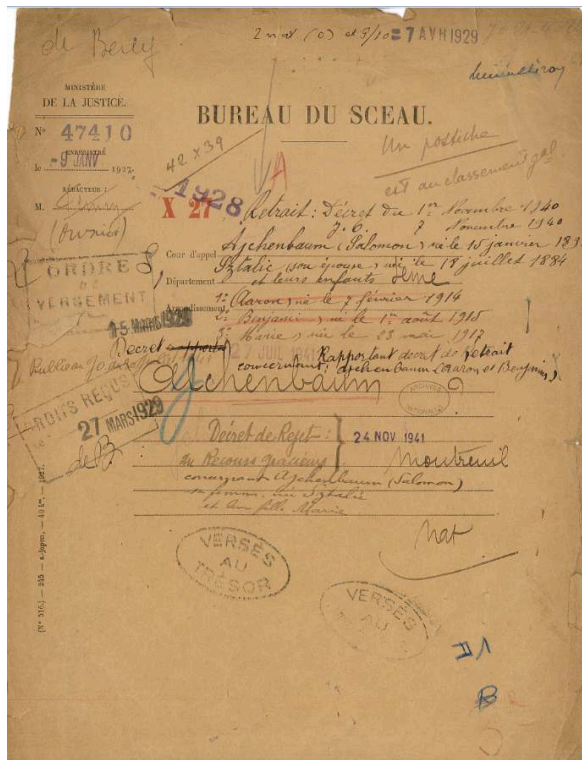 de Bercy
2 nat (0) et 9/10
= 7 AVR 1929
MINISTÈRE
DE LA JUSTICE.
N° 47410
ENREGISTRÉ
le - 9 JANV 1927.
RÉDACTEUR :
M.
BUREAU DU SCEAU.
42 X 39
Un postiche
est au classement gal
X 27
1928
Retrait : Décret du 1er Novembre 1940
J. O. 7 Novembre 1940
Cour d'appel
Ajchenbaum (Salomon) né le 15 janvier
Sztalie (son épouse) née le 18 juillet 1884
Département
et leurs enfants
Seine
Arrondissement
1° Aaron, né le 7 février 1914
2° Benjamin, né le 1er août 1915
3° Marie, née le 23 mai 1917
ORDRE
DE
VERSEMENT
15 MARS 1929
Décret
27 JUIL 1941
Rapportant décret de retrait
concernant : Ajchenbaum (Aaron et Benjamin)
Ajchenbaum
DROITS REÇUS
le
27 MARS 1929
Décret de Rejet :
au Recours gracieux
24 NOV 1941
Montreuil
concernant Ajchenbaum (Salomon)
sa femme, née Sztalie
et leur fille Marie
Nat
VERSÉS
AU
TRÉSOR
VERSÉS
AU
II 1
B